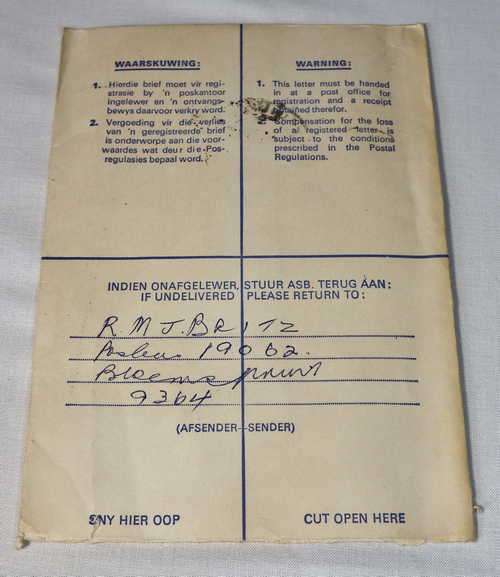 WAARSKUWING:
1. Hierdie brief moet vir regi-
strasie by 'n poskantoor
ingelewer en 'n ontvangs-
bewys daarvoor verkry word.
2. Vergoeding vir die verlies
van 'n geregistreerde brief
is onderworpe aan die voor-
waardes wat deur die Pos-
regulasies bepaal word.
WARNING:
1. This letter must be handed
in at a post office for
registration and a receipt
obtained therefor.
2. Compensation for the loss
of a registered letter is
subject to the conditions
prescribed in the Postal
Regulations.
INDIEN ONAFGELEWER, STUUR ASB. TERUG AAN:
IF UNDELIVERED PLEASE RETURN TO:
R M J. BRITZ
Posbus 19062.
Bloemspruit
9364
(AFSENDER—SENDER)
SNY HIER OOP
CUT OPEN HERE